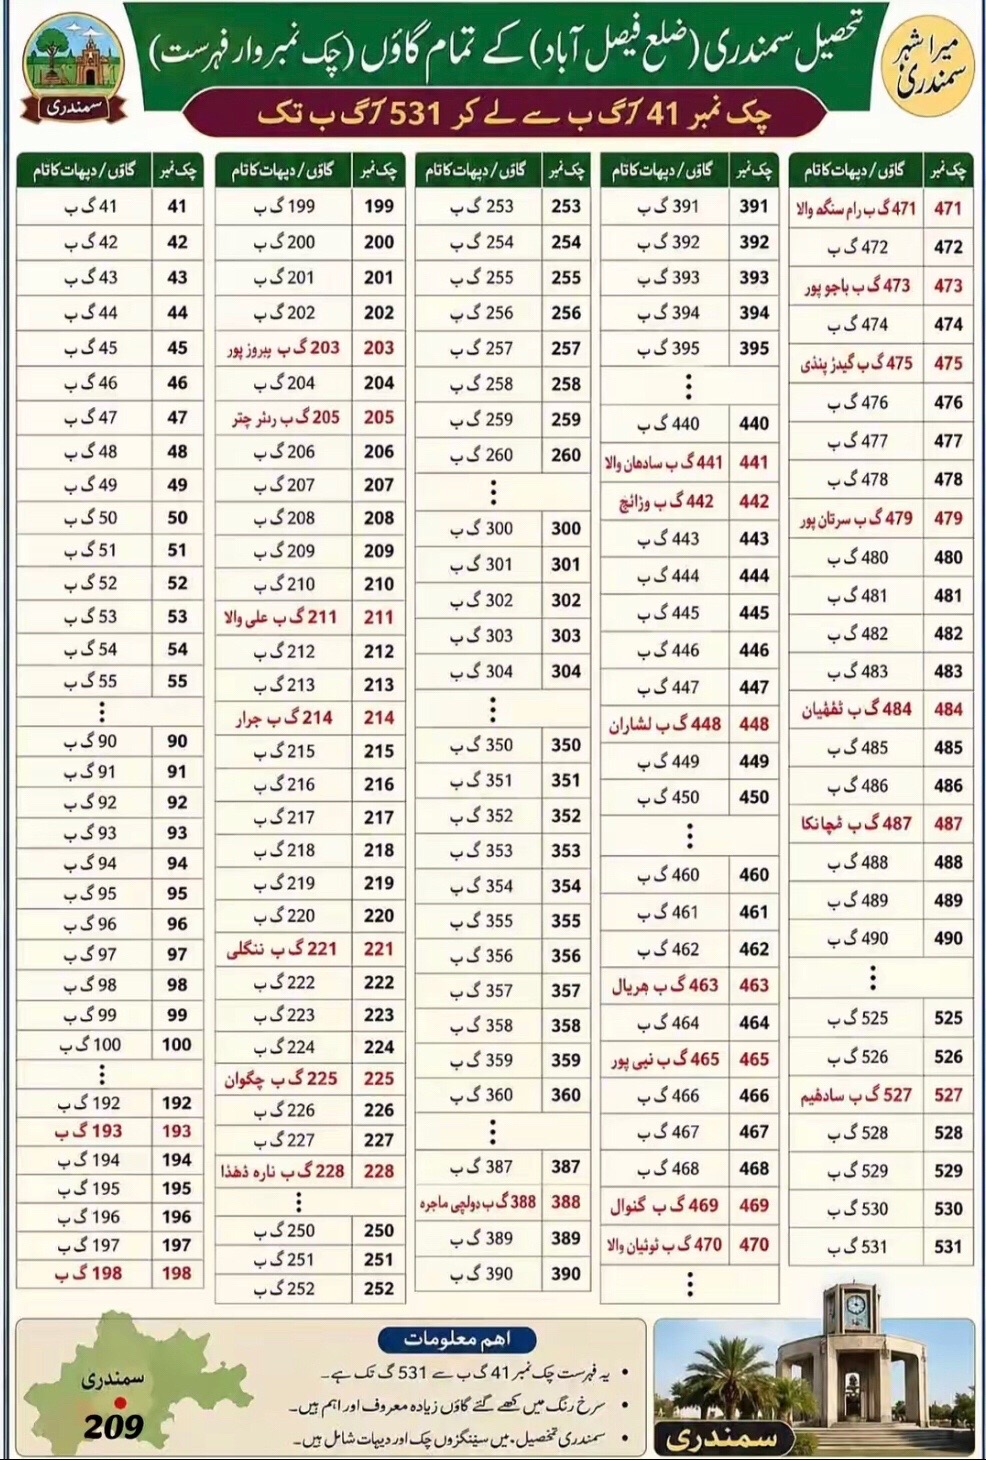 تحصیل سمندری (ضلع فیصل آباد) کے تمام گاؤں (چک نمبر وار فہرست)
میرا شہر
سمندری
سمندری
چک نمبر 41/گ ب سے لے کر 531/گ ب تک
چک نمبر گاؤں/دیہات کا نام
41 41 گ ب
42 42 گ ب
43 43 گ ب
44 44 گ ب
45 45 گ ب
46 46 گ ب
47 47 گ ب
48 48 گ ب
49 49 گ ب
50 50 گ ب
51 51 گ ب
52 52 گ ب
53 53 گ ب
54 54 گ ب
55 55 گ ب
⋮
90 90 گ ب
91 91 گ ب
92 92 گ ب
93 93 گ ب
94 94 گ ب
95 95 گ ب
96 96 گ ب
97 97 گ ب
98 98 گ ب
99 99 گ ب
100 100 گ ب
⋮
192 192 گ ب
193 193 گ ب
194 194 گ ب
195 195 گ ب
196 196 گ ب
197 197 گ ب
198 198 گ ب
چک نمبر گاؤں/دیہات کا نام
199 199 گ ب
200 200 گ ب
201 201 گ ب
202 202 گ ب
203 203 گ ب پیروز پور
204 204 گ ب
205 205 گ ب چتر
206 206 گ ب
207 207 گ ب
208 208 گ ب
209 209 گ ب
210 210 گ ب
211 211 گ ب علی والا
212 212 گ ب
213 213 گ ب
214 214 گ ب جرار
215 215 گ ب
216 216 گ ب
217 217 گ ب
218 218 گ ب
219 219 گ ب
220 220 گ ب
221 221 گ ب ننگلی
222 222 گ ب
223 223 گ ب
224 224 گ ب
225 225 گ ب چگوان
226 226 گ ب
227 227 گ ب
228 228 گ ب نارہ ڈھڈا
⋮
250 250 گ ب
251 251 گ ب
252 252 گ ب
چک نمبر گاؤں/دیہات کا نام
253 253 گ ب
254 254 گ ب
255 255 گ ب
256 256 گ ب
257 257 گ ب
258 258 گ ب
259 259 گ ب
260 260 گ ب
⋮
300 300 گ ب
301 301 گ ب
302 302 گ ب
303 303 گ ب
304 304 گ ب
⋮
350 350 گ ب
351 351 گ ب
352 352 گ ب
353 353 گ ب
354 354 گ ب
355 355 گ ب
356 356 گ ب
357 357 گ ب
358 358 گ ب
359 359 گ ب
360 360 گ ب
⋮
387 387 گ ب
388 388 گ ب دولچی ماجرہ
389 389 گ ب
390 390 گ ب
چک نمبر گاؤں/دیہات کا نام
391 391 گ ب
392 392 گ ب
393 393 گ ب
394 394 گ ب
395 395 گ ب
⋮
440 440 گ ب
441 441 گ ب سادھان والا
442 442 گ ب وڑائچ
443 443 گ ب
444 444 گ ب
445 445 گ ب
446 446 گ ب
447 447 گ ب
448 448 گ ب لشاران
449 449 گ ب
450 450 گ ب
⋮
460 460 گ ب
461 461 گ ب
462 462 گ ب
463 463 گ ب ہریال
464 464 گ ب
465 465 گ ب نبی پور
466 466 گ ب
467 467 گ ب
468 468 گ ب
469 469 گ ب گنوال
470 470 گ ب ٹوئیان والا
⋮
چک نمبر گاؤں/دیہات کا نام
471 471 گ ب رام سنگھ والا
472 472 گ ب
473 473 گ ب باجو پور
474 474 گ ب
475 475 گ ب گیدڑ پنڈی
476 476 گ ب
477 477 گ ب
478 478 گ ب
479 479 گ ب سرتان پور
480 480 گ ب
481 481 گ ب
482 482 گ ب
483 483 گ ب
484 484 گ ب
485 485 گ ب
486 486 گ ب
487 487 گ ب
488 488 گ ب
489 489 گ ب
490 490 گ ب
⋮
525 525 گ ب
526 526 گ ب
527 527 گ ب سادھیم
528 528 گ ب
529 529 گ ب
530 530 گ ب
531 531 گ ب
اہم معلومات
• یہ فہرست چک نمبر 41 گ ب سے 531 گ تک ہے۔
• سرخ رنگ میں کھے گئے گاؤں زیادہ معروف اور اہم ہیں۔
• سمندری تحصیل میں سینکڑوں چک اور دیہات شامل ہیں۔
سمندری
209
سمندری